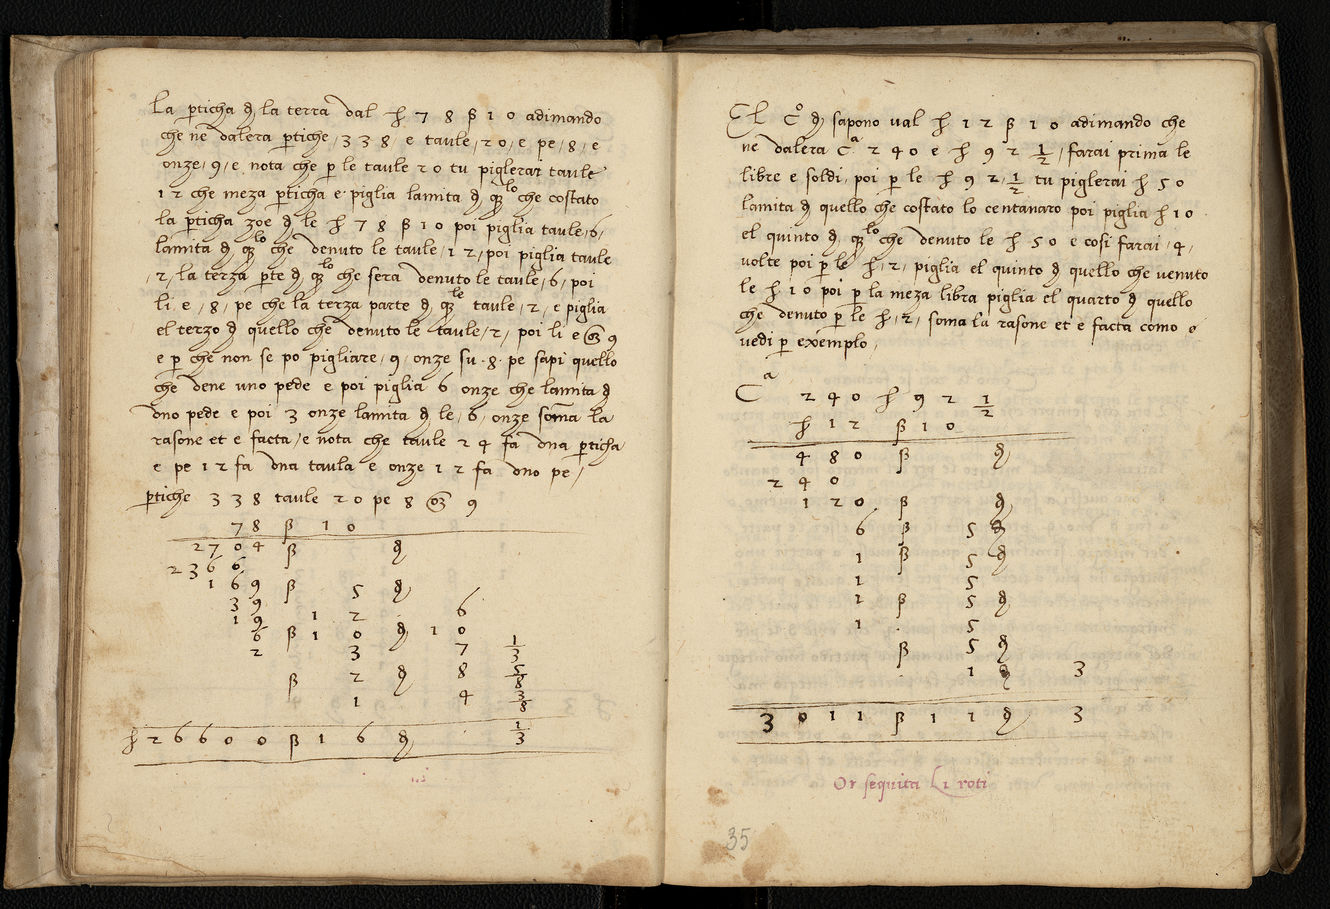 la perticha de la terra dal ħ 7 8 ß 1 0 adimando
che ne dalera pertiche / 3 3 8 / e taule / 2 0 / e pe / 8 / e
onze / 9 / e nota che per le taule 2 0 tu piglerar taule
1 2 che meza perticha e piglia lamita de quello che costato
la perticha zoe de le ħ 7 8 ß 1 0 poi piglia taule / 6 /
lamita de quello che denuto le taule / 1 2 / poi piglia taule
/ 2 / la terza parte de quello che sera denuto le taule / 6 / poi
li e / 8 / pe che la terza parte de quelle taule / 2 / e piglia
el terzo de quello che denuto le taule / 2 / poi li e onze 9
e per che non se po pigliare / 9 / onze su · 8 · pe sapi quello
che dene uno pede e poi piglia 6 onze che lamita de
dno pede e poi 3 onze lamita de le / 6 / onze soma la
rasone et e facta / e nota che taule 2 4 fa dna perticha
e pe 1 2 fa dna taula e onze 1 2 fa dno pe /
pertiche 3 3 8 taule 2 0 pe 8 onze 9
7 8 ß 1 0
2 7 0 4 ß d
2 3 6 6
1 6 9 ß 5 d
3 9
1 9 1 2 6
6 ß 1 0 d 1 0
2 3 7 1/3
ß 2 d 8 5/8
1 4 3/8
ħ 2 6 6 0 0 ß 1 6 d 1/3
El Cº de sapono val ħ 1 2 ß 1 0 adimando che
ne dalera Cª 2 4 0 e ħ 9 2 1/2 / farai prima le
libre e soldi / poi per le ħ 9 2 / 1/2 tu piglerai ħ 5 0
lamita de quello che costato lo centanaro poi piglia ħ 1 0
el quinto de quello che denuto le ħ 5 0 e cosi farai / 4 /
volte poi per le ħ / 2 / piglia el quinto de quello che venuto
le ħ 1 0 poi per la meza libra piglia el quarto de quello
che denuto per le ħ / 2 / soma la rasone et e facta como e
vedi per exemplo /
Cª 2 4 0 ħ 9 2 1/2
ħ 1 2 ß 1 0
4 8 0 ß d
2 4 0
1 2 0 ß d
6 ß 5 d
1 ß 5 d
1 5
1 ß 5 d
1 5
ß 5 d
1 d 3
3 0 1 1 ß 1 1 d 3
Or sequita Li roti
35